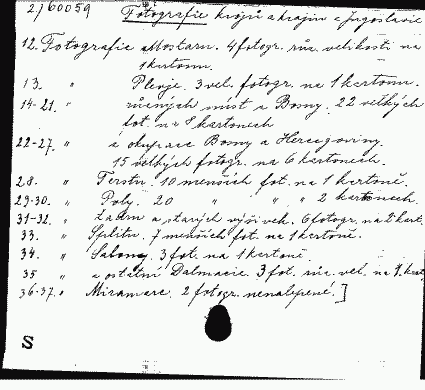 2/60059 Fotografie krojů a krajin z Jugoslavie
12. Fotografie Mostaru. 4 fotogr. růz. velikosti na
1 kartonu.
13. " Plevje. 3 vel. fotogr. na 1 kartonu.
14-21. " různých míst z Bosny. 22 velkých
fot. na 8 kartonech
22-27. " z okupace Bosny a Hercegoviny.
15 velkých fotogr. na 6 kartonech.
28. " Terstu. 10 menších fot. na 1 kartoně.
29-30. " Poly. 20 " " " 2 kartonech.
31-32. " Zadru a starých výšivek. 6 fotogr. na 2 kart.
33. " Splitu. 7 menších fot. na 1 kartoně.
34. " Salony. 3 fot. na 1 kartoně.
35 " z ostatní Dalmacie. 3 fot. růz. vel. na 1 kart.
36-37. " Miramare. 2 fotogr. nenalepené.]
S